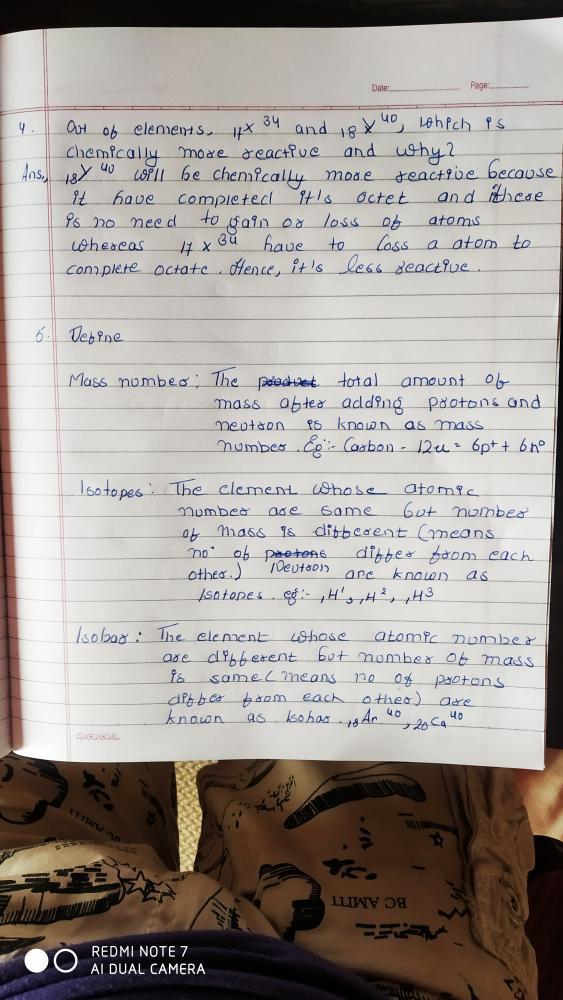 Date: Page:
4. Out of elements, 17X 34 and 18Y 40, which is
chemically more reactive and why?
Ans, 18Y 40 will be chemically more reactive because
it have completed it's octet and there
is no need to gain or loss of atoms
whereas 17 X 34 have to loss a atom to
complete octate. Hence, it's less reactive.
5. Define
Mass number: The product total amount of
mass after adding protons and
neutron is known as mass
number. Eg:- Carbon - 12u = 6p+ + 6n°
Isotopes: The element whose atomic
number are same but number
of mass is different (means
no. of protons differ from each
other.) Neutron are known as
Isotopes. eg:- 1H1, 1H2, 1H3
Isobar: The element whose atomic number
are different but number of mass
is same (means no of protons
differ from each other) are
known as Isobar. 18Ar 40, 20Ca 40
GURUKUL
BC AMITI
BC AMITI
REDMI NOTE 7
AI DUAL CAMERA